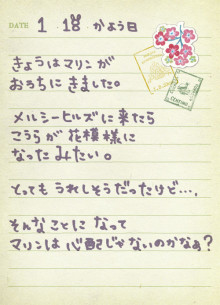 DATE 1 18 かよう日
きょうはマリンが
おろちに きました。
メルシーヒルズに来たら
こうらが花模様に
なった みたい。
とっても うれしそうだったけど…。
そんなことに なって
マリンは 心配じゃないのかなぁ?